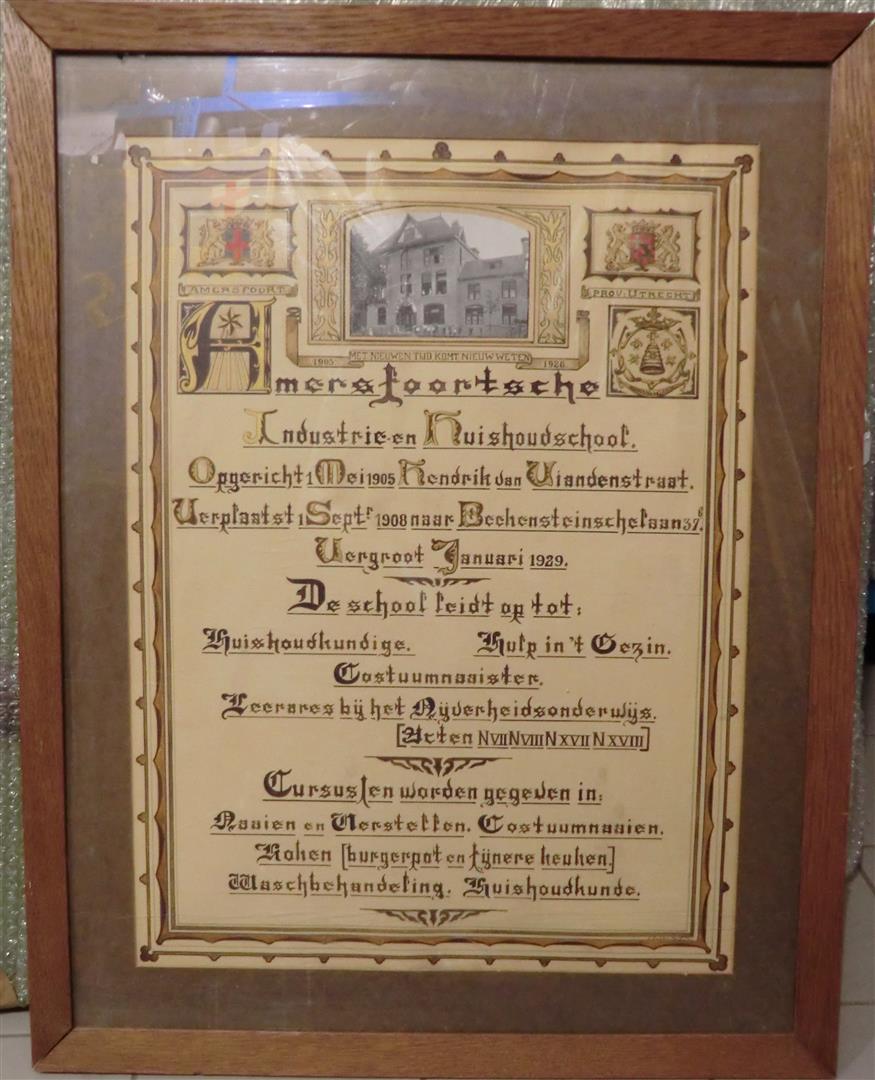 AMERSFOORT
PROV: UTRECHT
1905. MET NIEUWEN TIJD KOMT NIEUW WETEN 1928.
Amersfoortsche
Industrie- en Huishoudschool.
Opgericht 1 Mei 1905 Hendrik van Viandenstraat.
Verplaatst 1 Septr 1908 naar Beekensteinschelaan 37e.
Vergroot Januari 1929.
De school leidt op tot:
Huishoudkundige. Hulp in 't Gezin.
Costuumnaaister.
Leerares bij het Nijverheidsonderwijs.
[Acten N VII N VIII N XVII N XVIII]
Cursussen worden gegeven in:
Naaien en Verstellen. Costuumnaaien.
Koken [burgerpot en fijnere keuken.]
Waschbehandeling. Huishoudkunde.